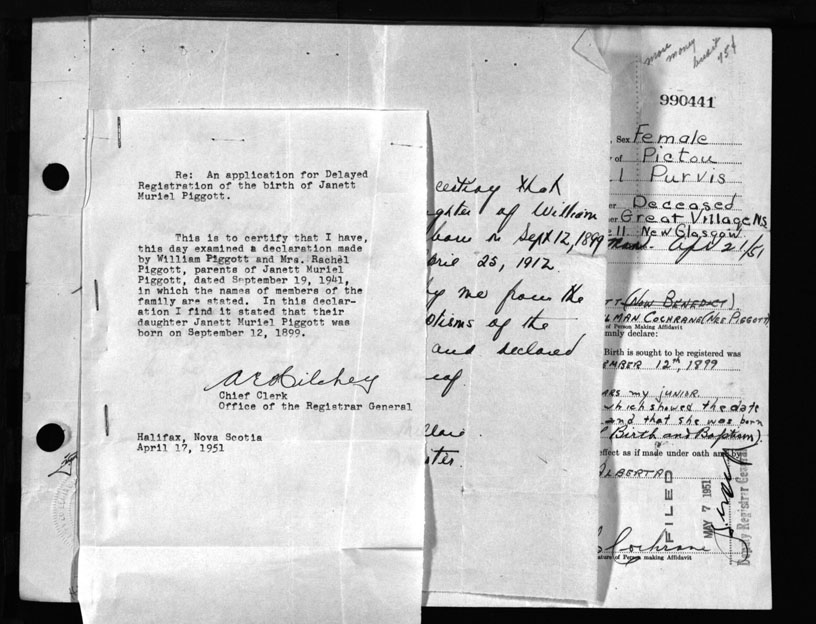 Re: An application for Delayed
Registration of the birth of Janett
Muriel Piggott.
This is to certify that I have,
this day examined a declaration made
by William Piggott and Mrs. Rachel
Piggott, parents of Janett Muriel
Piggott, dated September 19, 1941,
in which the names of members of the
family are stated. In this declar-
ation I find it stated that their
daughter Janett Muriel Piggott was
born on September 12, 1899.
Chief Clerk
Office of the Registrar General
Halifax, Nova Scotia
April 17, 1951
that
ghter of William
born on Sept 12, 1899
pril 25, 1912.
me from the
ptisms of the
and declared
eof
more
money
75¢
990441
Sex Female
of Pictou
Purvis
Deceased
Great Village NS
New Glasgow
Apr 21/51
(Now Benedict)
LMAN COCHRANE (NEE PIGGOTT)
of Person Making Affidavit
mnly declare:
Birth is sought to be registered was
EMBER 12th, 1899
ARS my JUNIOR
which showed the date
and that she was born
Birth and Baptism).
effect as if made under oath and by
ALBERTA
FILED
MAY 7 1951
Deputy Registrar General
Cochrane
ature of Person making Affidavit